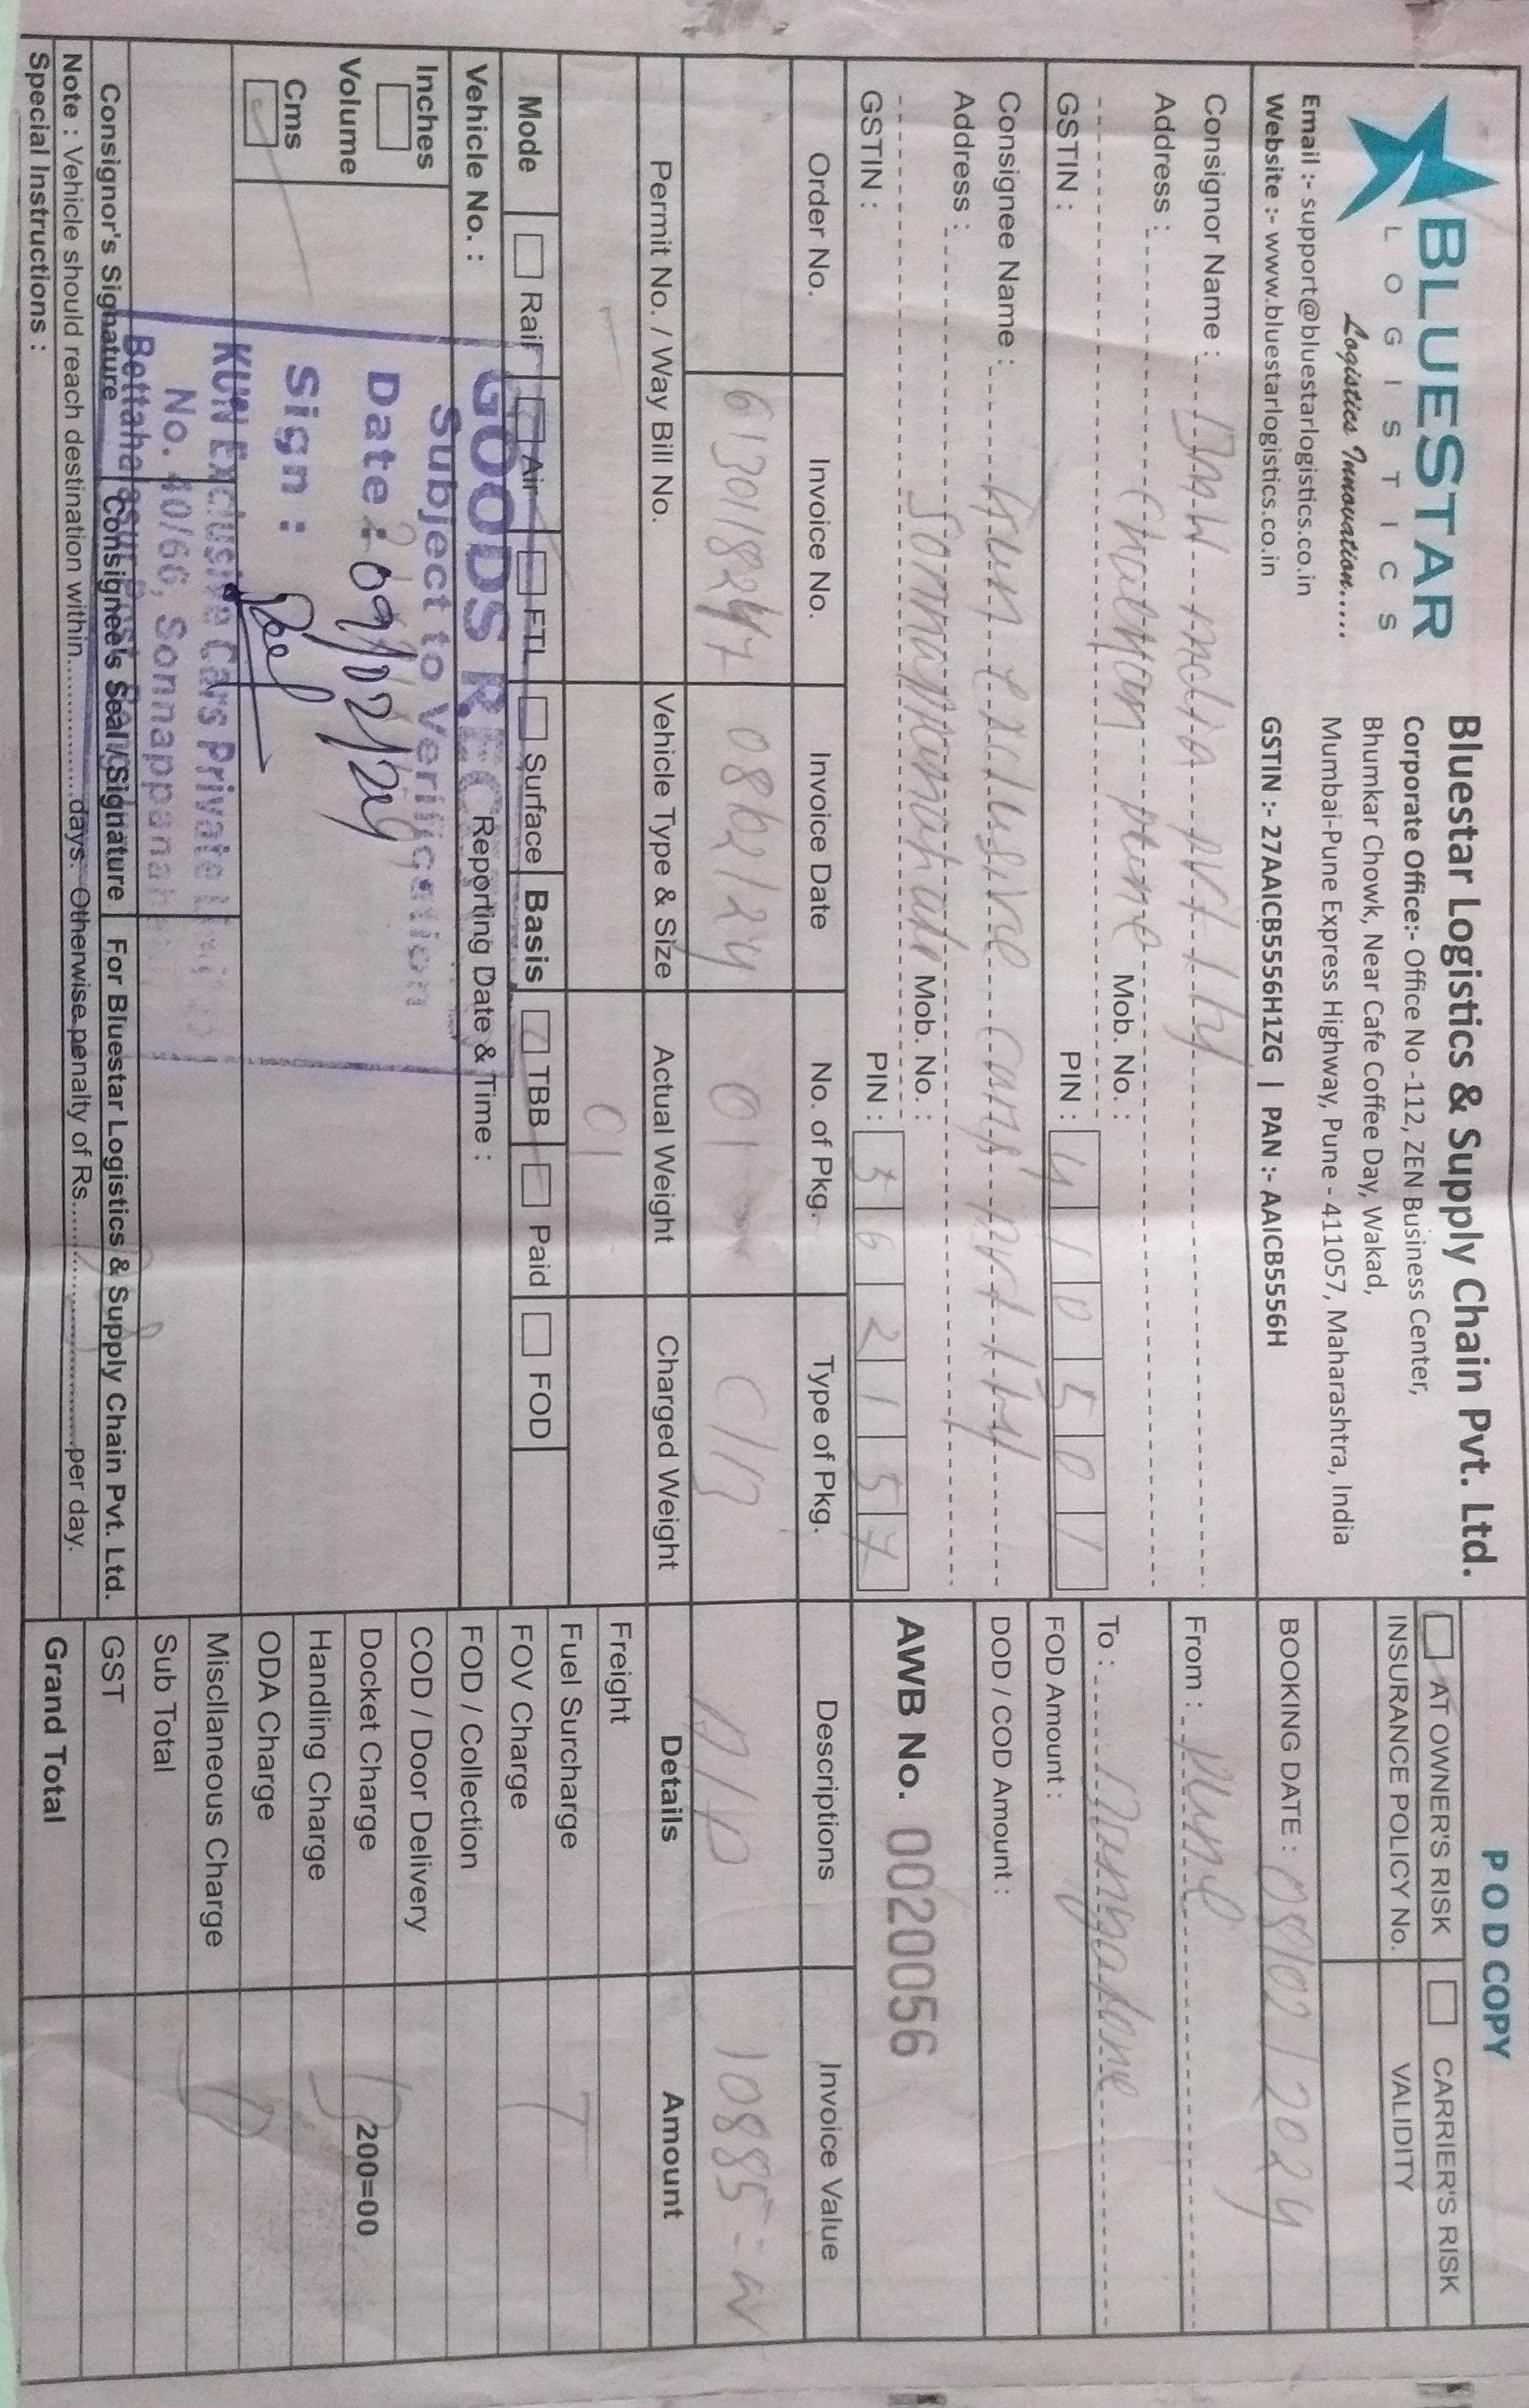 BLUESTAR
LOGISTICS
Logistics Innovation.....
Email :- support@bluestarlogistics.co.in
Website :- www.bluestarlogistics.co.in
Bluestar Logistics & Supply Chain Pvt. Ltd.
Corporate Office:- Office No -112, ZEN Business Center,
Bhumkar Chowk, Near Cafe Coffee Day, Wakad,
Mumbai-Pune Express Highway, Pune - 411057, Maharashtra, India
GSTIN :- 27AAICB5556H1ZG | PAN :- AAICB5556H
POD COPY
AT OWNER'S RISK CARRIER'S RISK
INSURANCE POLICY No. VALIDITY
BOOKING DATE : 08/02/2024
Consignor Name : BMW India pvt ltd
Address :
pune Mob. No. :
GSTIN : PIN : 410501
From : pune
To : Bangalore
FOD Amount :
Consignee Name : Kun exclusive cars pvt ltd
Address :
Mob. No. :
GSTIN : PIN : 562157
DOD / COD Amount :
AWB No. 0020056
Order No. Invoice No. Invoice Date No. of Pkg. Type of Pkg. Descriptions Invoice Value
08/02/24 01 C/B 10885=
Permit No. / Way Bill No. Vehicle Type & Size Actual Weight Charged Weight Details Amount
01
Mode Rail Air FTL Surface Basis TBB Paid FOD
Vehicle No. : Reporting Date & Time :
Inches
Volume
Cms
GOODS
Subject to Verification
Date : 09/02/24
Sign :
KUN Exclusive Cars Private
No. 40/66,
Freight
Fuel Surcharge
FOV Charge
FOD / Collection
COD / Door Delivery
Docket Charge 200=00
Handling Charge
ODA Charge
Miscllaneous Charge
Sub Total
GST
Grand Total
Consignor's Signature Consignee's Seal / Signature For Bluestar Logistics & Supply Chain Pvt. Ltd.
Note : Vehicle should reach destination within.................days. Otherwise penalty of Rs..............................per day.
Special Instructions :